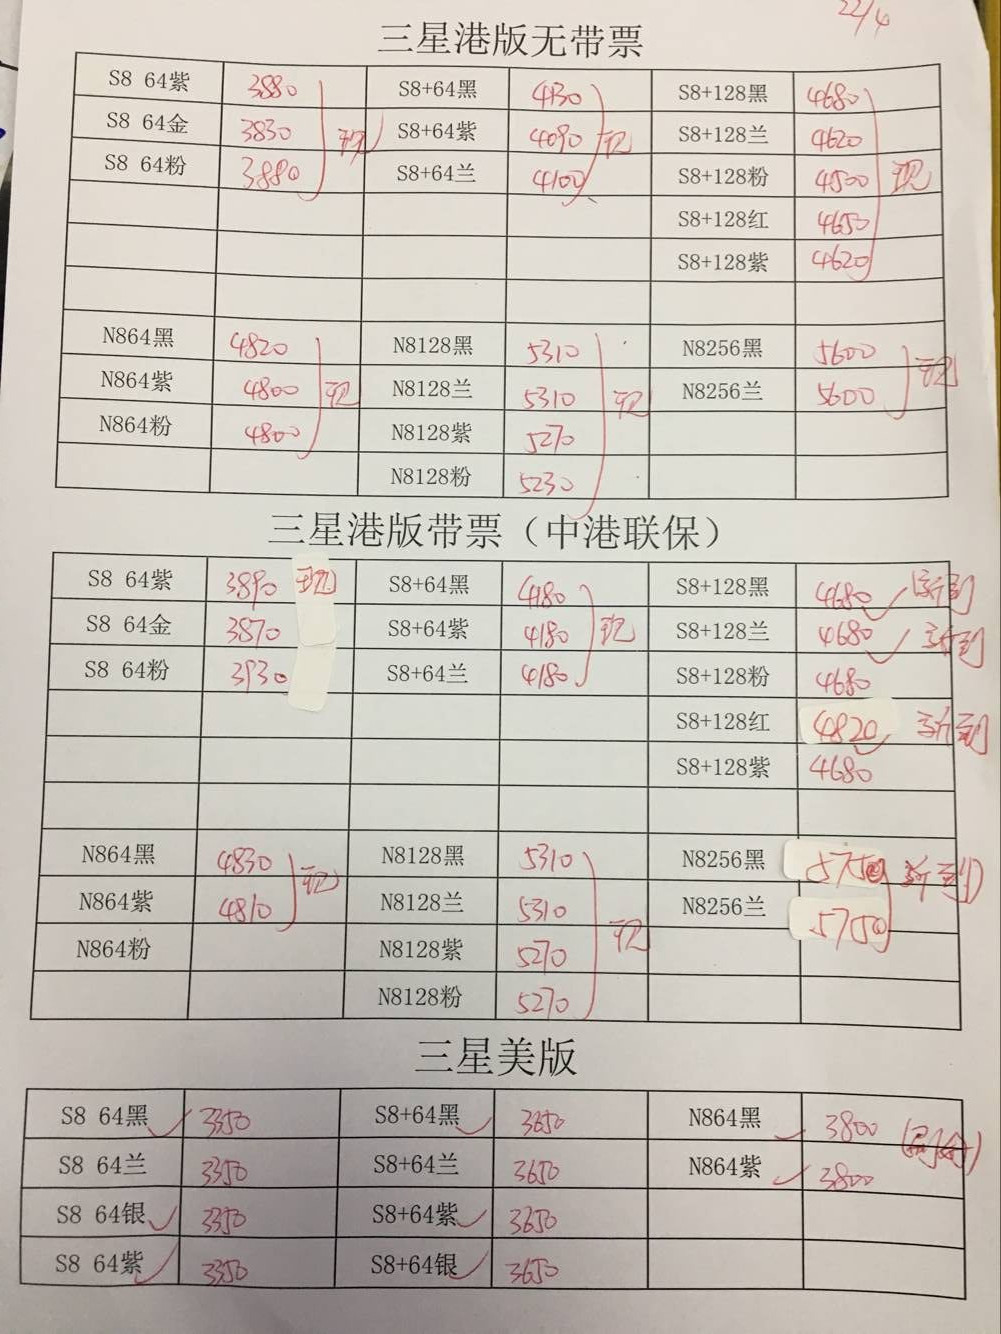 22/4
三星港版无带票
S8 64紫 3880 S8+64黑 4130 S8+128黑 4680
S8 64金 3830 现 S8+64紫 4090 现 S8+128兰 4620
S8 64粉 3880 S8+64兰 4100 S8+128粉 4500 现
S8+128红 4650
S8+128紫 4620
N864黑 4820 N8128黑 5310 N8256黑 5600 现
N864紫 4800 现 N8128兰 5310 现 N8256兰 5600
N864粉 4800 N8128紫 5270
N8128粉 5230
三星港版带票（中港联保）
S8 64紫 3890 现 S8+64黑 4180 S8+128黑 4680 新到
S8 64金 3870 S8+64紫 4180 现 S8+128兰 4680 新到
S8 64粉 3930 S8+64兰 4180 S8+128粉 4680
S8+128红 4820 新到
S8+128紫 4680
N864黑 4830 现 N8128黑 5310 N8256黑 5750 新到
N864紫 4810 N8128兰 5310 现 N8256兰 5750
N864粉 N8128紫 5270
N8128粉 5270
三星美版
S8 64黑 3350 S8+64黑 3650 N864黑 3800
S8 64兰 3350 S8+64兰 3650 N864紫 3800
S8 64银 3350 S8+64紫 3650
S8 64紫 3350 S8+64银 3650